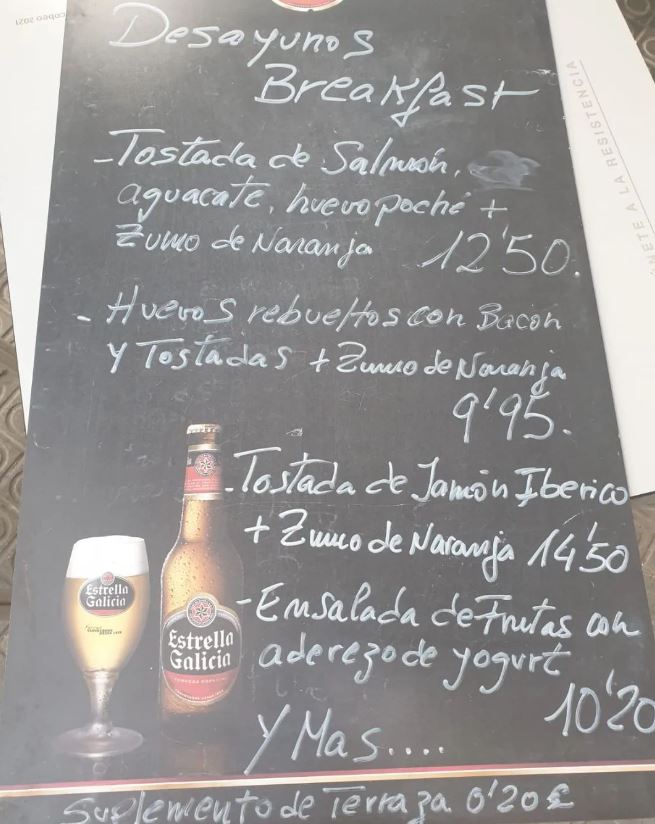 cobeo 2021
Desayunos
Breakfast
-Tostada de Salmón,
aguacate, huevo poché +
Zumo de Naranja 12'50.
- Huevos rebueltos con Bacon
y Tostadas + Zumo de Naranja
9'95.
-Tostada de Jamón Iberico
+ Zumo de Naranja 14'50
-Ensalada de Frutas con
aderezo de yogurt
10'20
Y Mas....
Suplemento de Terraza 0'20€
Estrella
Galicia
Estrella
Galicia
CERVEZA ESPECIAL
ÚNETE A LA RESISTENCIA